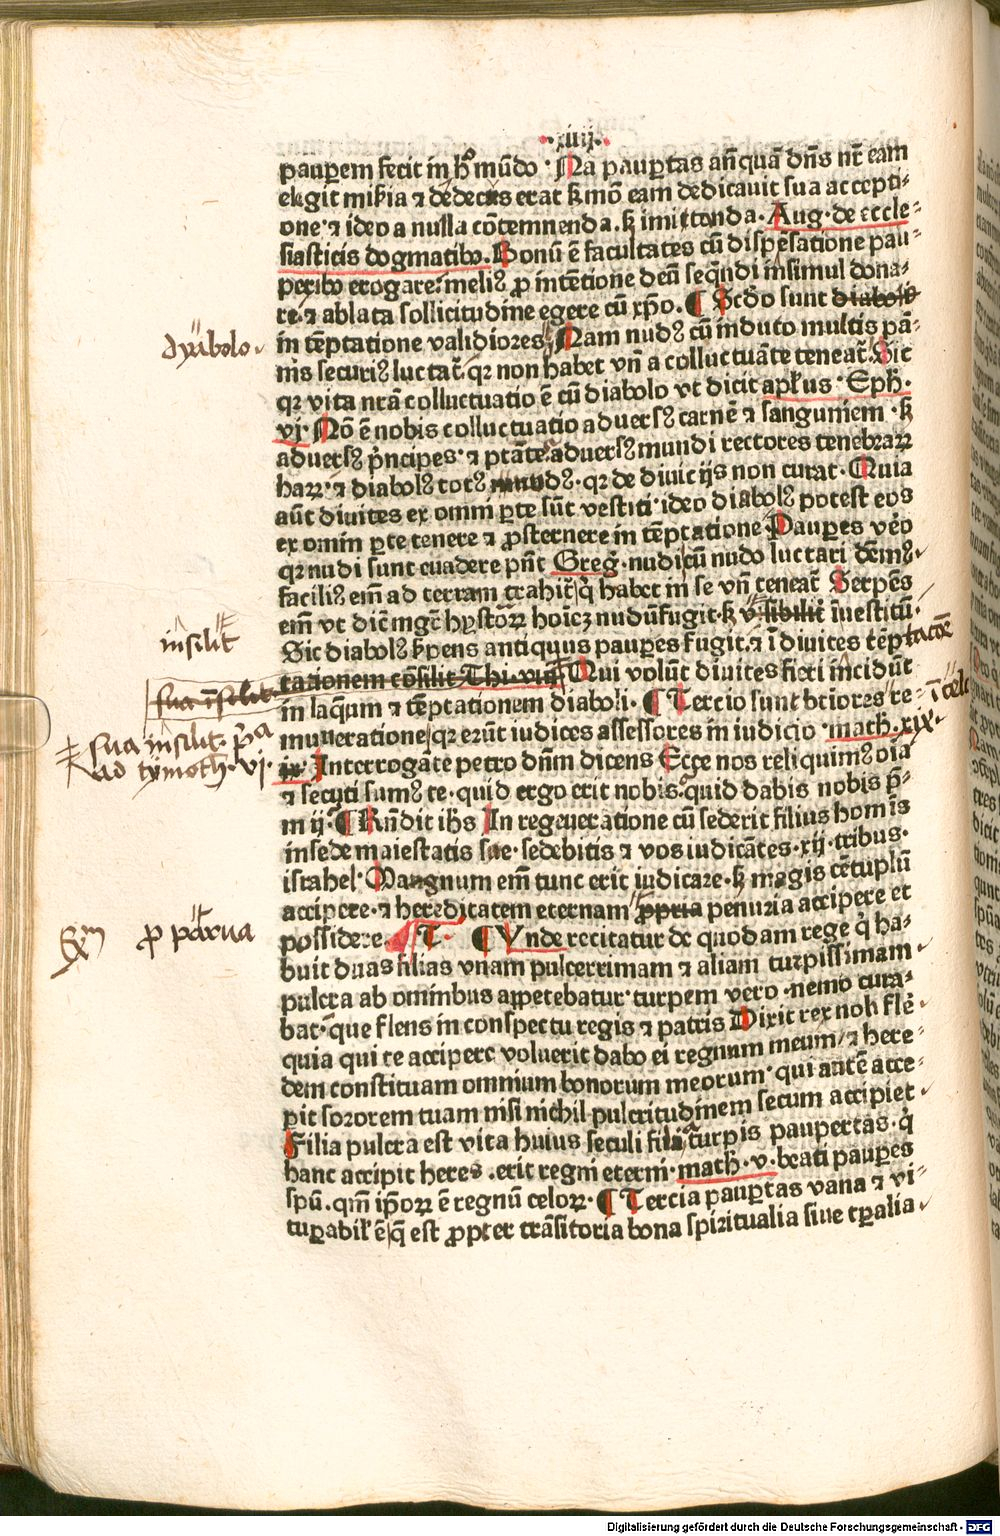 .xiiij.
pauꝑem fecit in hͦ mūdo · Na paupꝛtas añ quā dñs nr̄ eam
elegit miẜia ⁊ dedecus erat ẜ mō eam dedicauit sua accepti⸗
one · ⁊ ideo a nulla cōtemnenda . ẜ imittonda . Aug · de eccle⸗
siasticis dogmatibꝰ . Bonū ē facultates cū dispēsatione pau⸗
peribꝰ erogare : meliꝰ ꝓ intētione deū seqn̄di insimul dona⸗
re . ⁊ ablata sollicitudine egere cū xp̄o . ¶ Scd̄o sunt diabolo
dyabolo
in tēptatione validiores Nam nudꝰ cū induto multis pā⸗
nis securiꝰ luctat̄ . qꝛ non habet vn̄ a colluctuāte teneat̄ . Sic
qꝛ vita nr̄a colluctuatio ē cū diabolo vt dicit apl̄us · Eph̄ .
vj · Nō ē nobis colluctuatio aduersꝰ carnē ⁊ sanguniem · ẜ
aduersꝰ p̄ncipes · ⁊ ptāte aduersꝰ mundi rectores tenebraꝝ
haꝝ · ⁊ diabolꝰ totꝰ nudꝰ · qꝛ de diuicijs non curat · Quia
aūt diuites ex omni ꝑte sūt vestiti · ideo diabolꝰ potest eos
ex omin ꝑte tenere ⁊ ꝓsternere in tēptatione Pauꝑes vēo
qꝛ nudi sunt euadere pn̄t Greg · nudi cū nudo luctari dēmꝰ
faciliꝰ em̄ ad terram trahit̄ q̇ habet in se vn̄ teneat̄ Serpēs
em̄ vt dic̄ mgr̄ hystoꝝ hoīeꝫ nudū fugit · ẜ v̄ sibilit īuestitū ·
insilit
Sic diabolꝰ ẜpens antiquus pauꝑes fugit . ⁊ ī diuites tēptacōe
tationem cōsilit Thi · vi Qui volūt diuites fieri incidūt
sua īsilit
in laq̄um ⁊ tēptationem diaboli . ¶ Tercio sunt btiores re⸗ ī cele
muneratione qꝛ erūt iudices assessores in iudicio · math . xix .
sua insilit · p̄a
ad tymoth · vj ·
ix · Interrogāte petro dn̄m dicens Ecce nos reliquimꝰ oīa
⁊ secuti sumꝰ te · quid ergo erit nobis · quid dabis nobis p̄⸗
mij · ¶ Rn̄dit ihs In regeueratione cū sederit filius homīs
in sede maiestatis sue · sedebitis ⁊ vos iudicātes · xij · tribus ·
israhel · Maagnum em̄ tunc erit iudicare · ẜ magis cētuplū
accipere · ⁊ hereditatem eternam ꝓppria penuria accipere et
ꝓ parua
possidere T · ¶ Vnde recitatur de quodam rege q̇ ha⸗
buit duas filias vnam pulcerrimam ⁊ aliam turpissimam
pulcra ab omnibus appetebatur · turpem vero · nemo cura⸗
bat · que flens in conspectu regis ⁊ patris Dixit rex noli flē
quia qui te accipere voluerit dabo ei regnum meum / ⁊ here
dem constituam omnium bonorum meorum · qui autē acce⸗
pit sororem tuam nisi nichil pulcritudinem secum accipiet
Filia pulcra est vita huius seculi filia turpis paupertas · q̇
hanc accipit heres . erit regni eterni · math̄ · v · beati pauꝑes
spū . qm̄ ip̄oꝝ ē regnū celoꝝ · ¶ Tercia paupꝛtas vana ⁊ vi⸗
tuꝑabil̄ ē q̄ est ꝓpter trāsitoria bona spiritualia siue tꝑalia
Digitalisierung gefördert durch die Deutsche Forschungsgemeinschaft - DFG